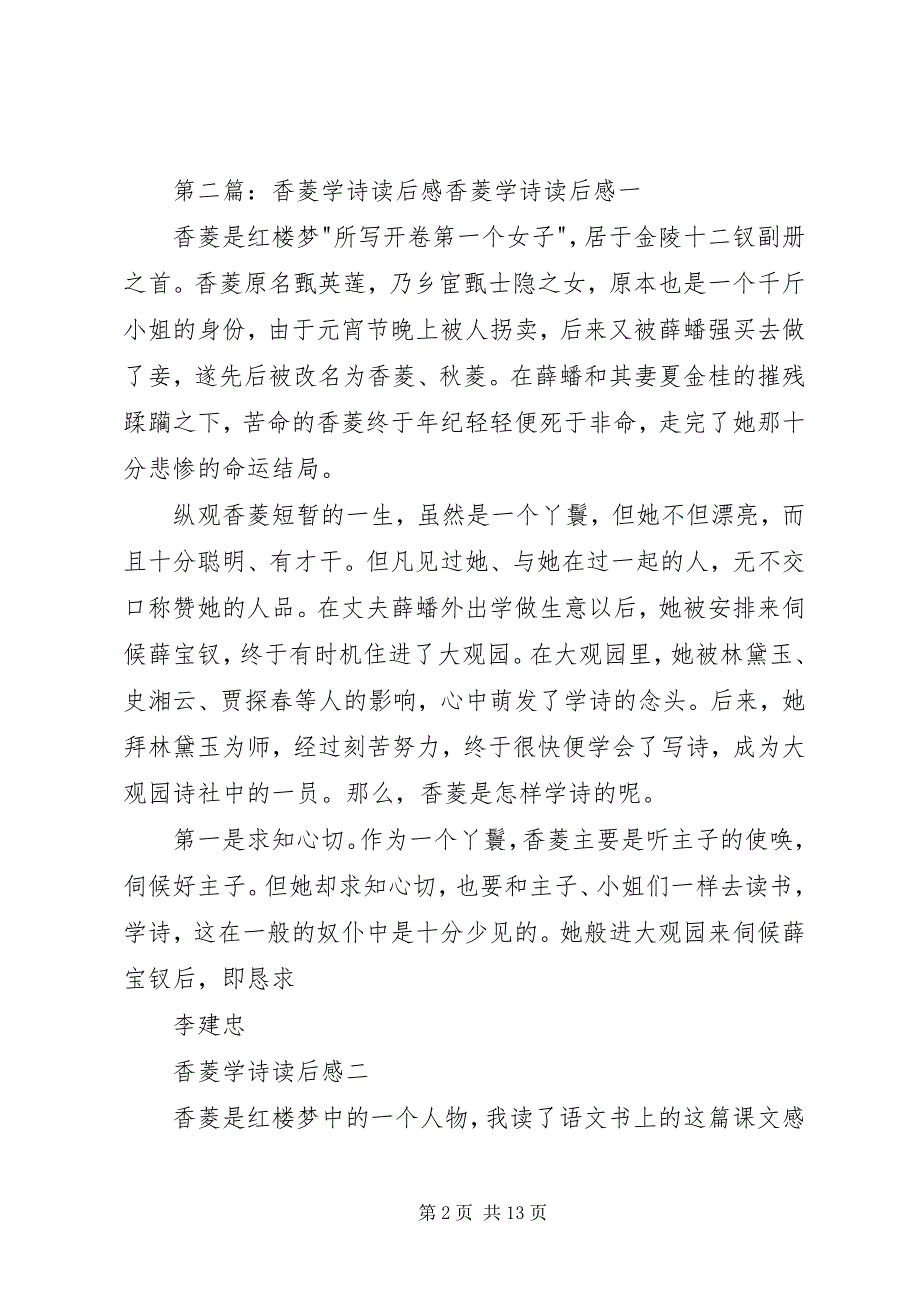 第二篇：香菱学诗读后感香菱学诗读后感一
香菱是红楼梦"所写开卷第一个女子",居于金陵十二钗副册
之首。香菱原名甄英莲，乃乡宦甄士隐之女，原本也是一个千斤
小姐的身份，由于元宵节晚上被人拐卖，后来又被薛蟠强买去做
了妾，遂先后被改名为香菱、秋菱。在薛蟠和其妻夏金桂的摧残
蹂躏之下，苦命的香菱终于年纪轻轻便死于非命，走完了她那十
分悲惨的命运结局。
纵观香菱短暂的一生，虽然是一个丫鬟，但她不但漂亮，而
且十分聪明、有才干。但凡见过她、与她在过一起的人，无不交
口称赞她的人品。在丈夫薛蟠外出学做生意以后，她被安排来伺
候薛宝钗，终于有时机住进了大观园。在大观园里，她被林黛玉、
史湘云、贾探春等人的影响，心中萌发了学诗的念头。后来，她
拜林黛玉为师，经过刻苦努力，终于很快便学会了写诗，成为大
观园诗社中的一员。那么，香菱是怎样学诗的呢。
第一是求知心切。作为一个丫鬟，香菱主要是听主子的使唤，
伺候好主子。但她却求知心切，也要和主子、小姐们一样去读书，
学诗，这在一般的奴仆中是十分少见的。她般进大观园来伺候薛
宝钗后，即恳求
李建忠
香菱学诗读后感二
香菱是红楼梦中的一个人物，我读了语文书上的这篇课文感
第 2 页 共 13 页